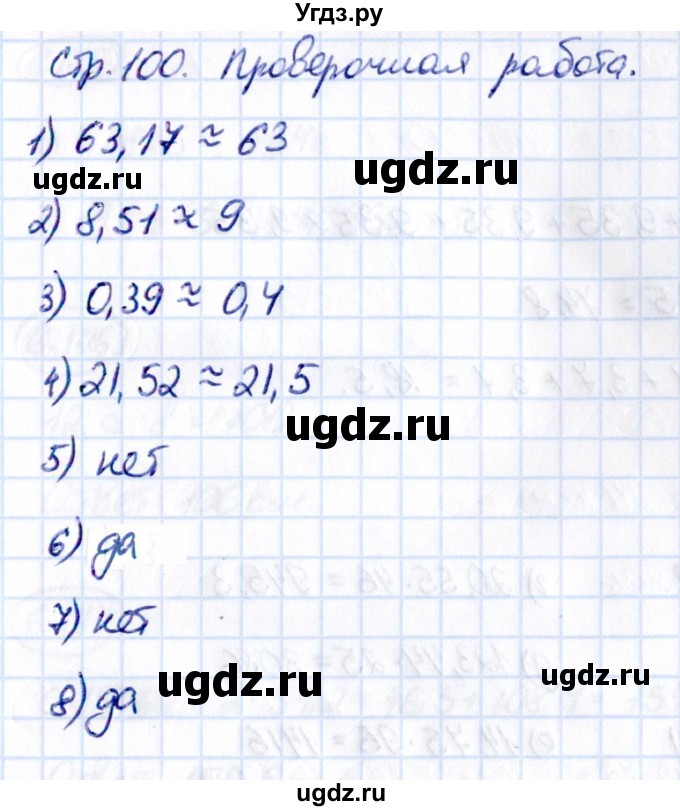 Угдз.ру
Стр. 100. Проверочная работа.
1) 63,17 ≈ 63
ugdz.ru ugdz.ru
2) 8,51 ≈ 9
3) 0,39 ≈ 0,4
4) 21,52 ≈ 21,5
ugdz.ru
5) нет
6) да
7) нет
ugdz.ru ugdz.ru
8) да
ugdz.ru